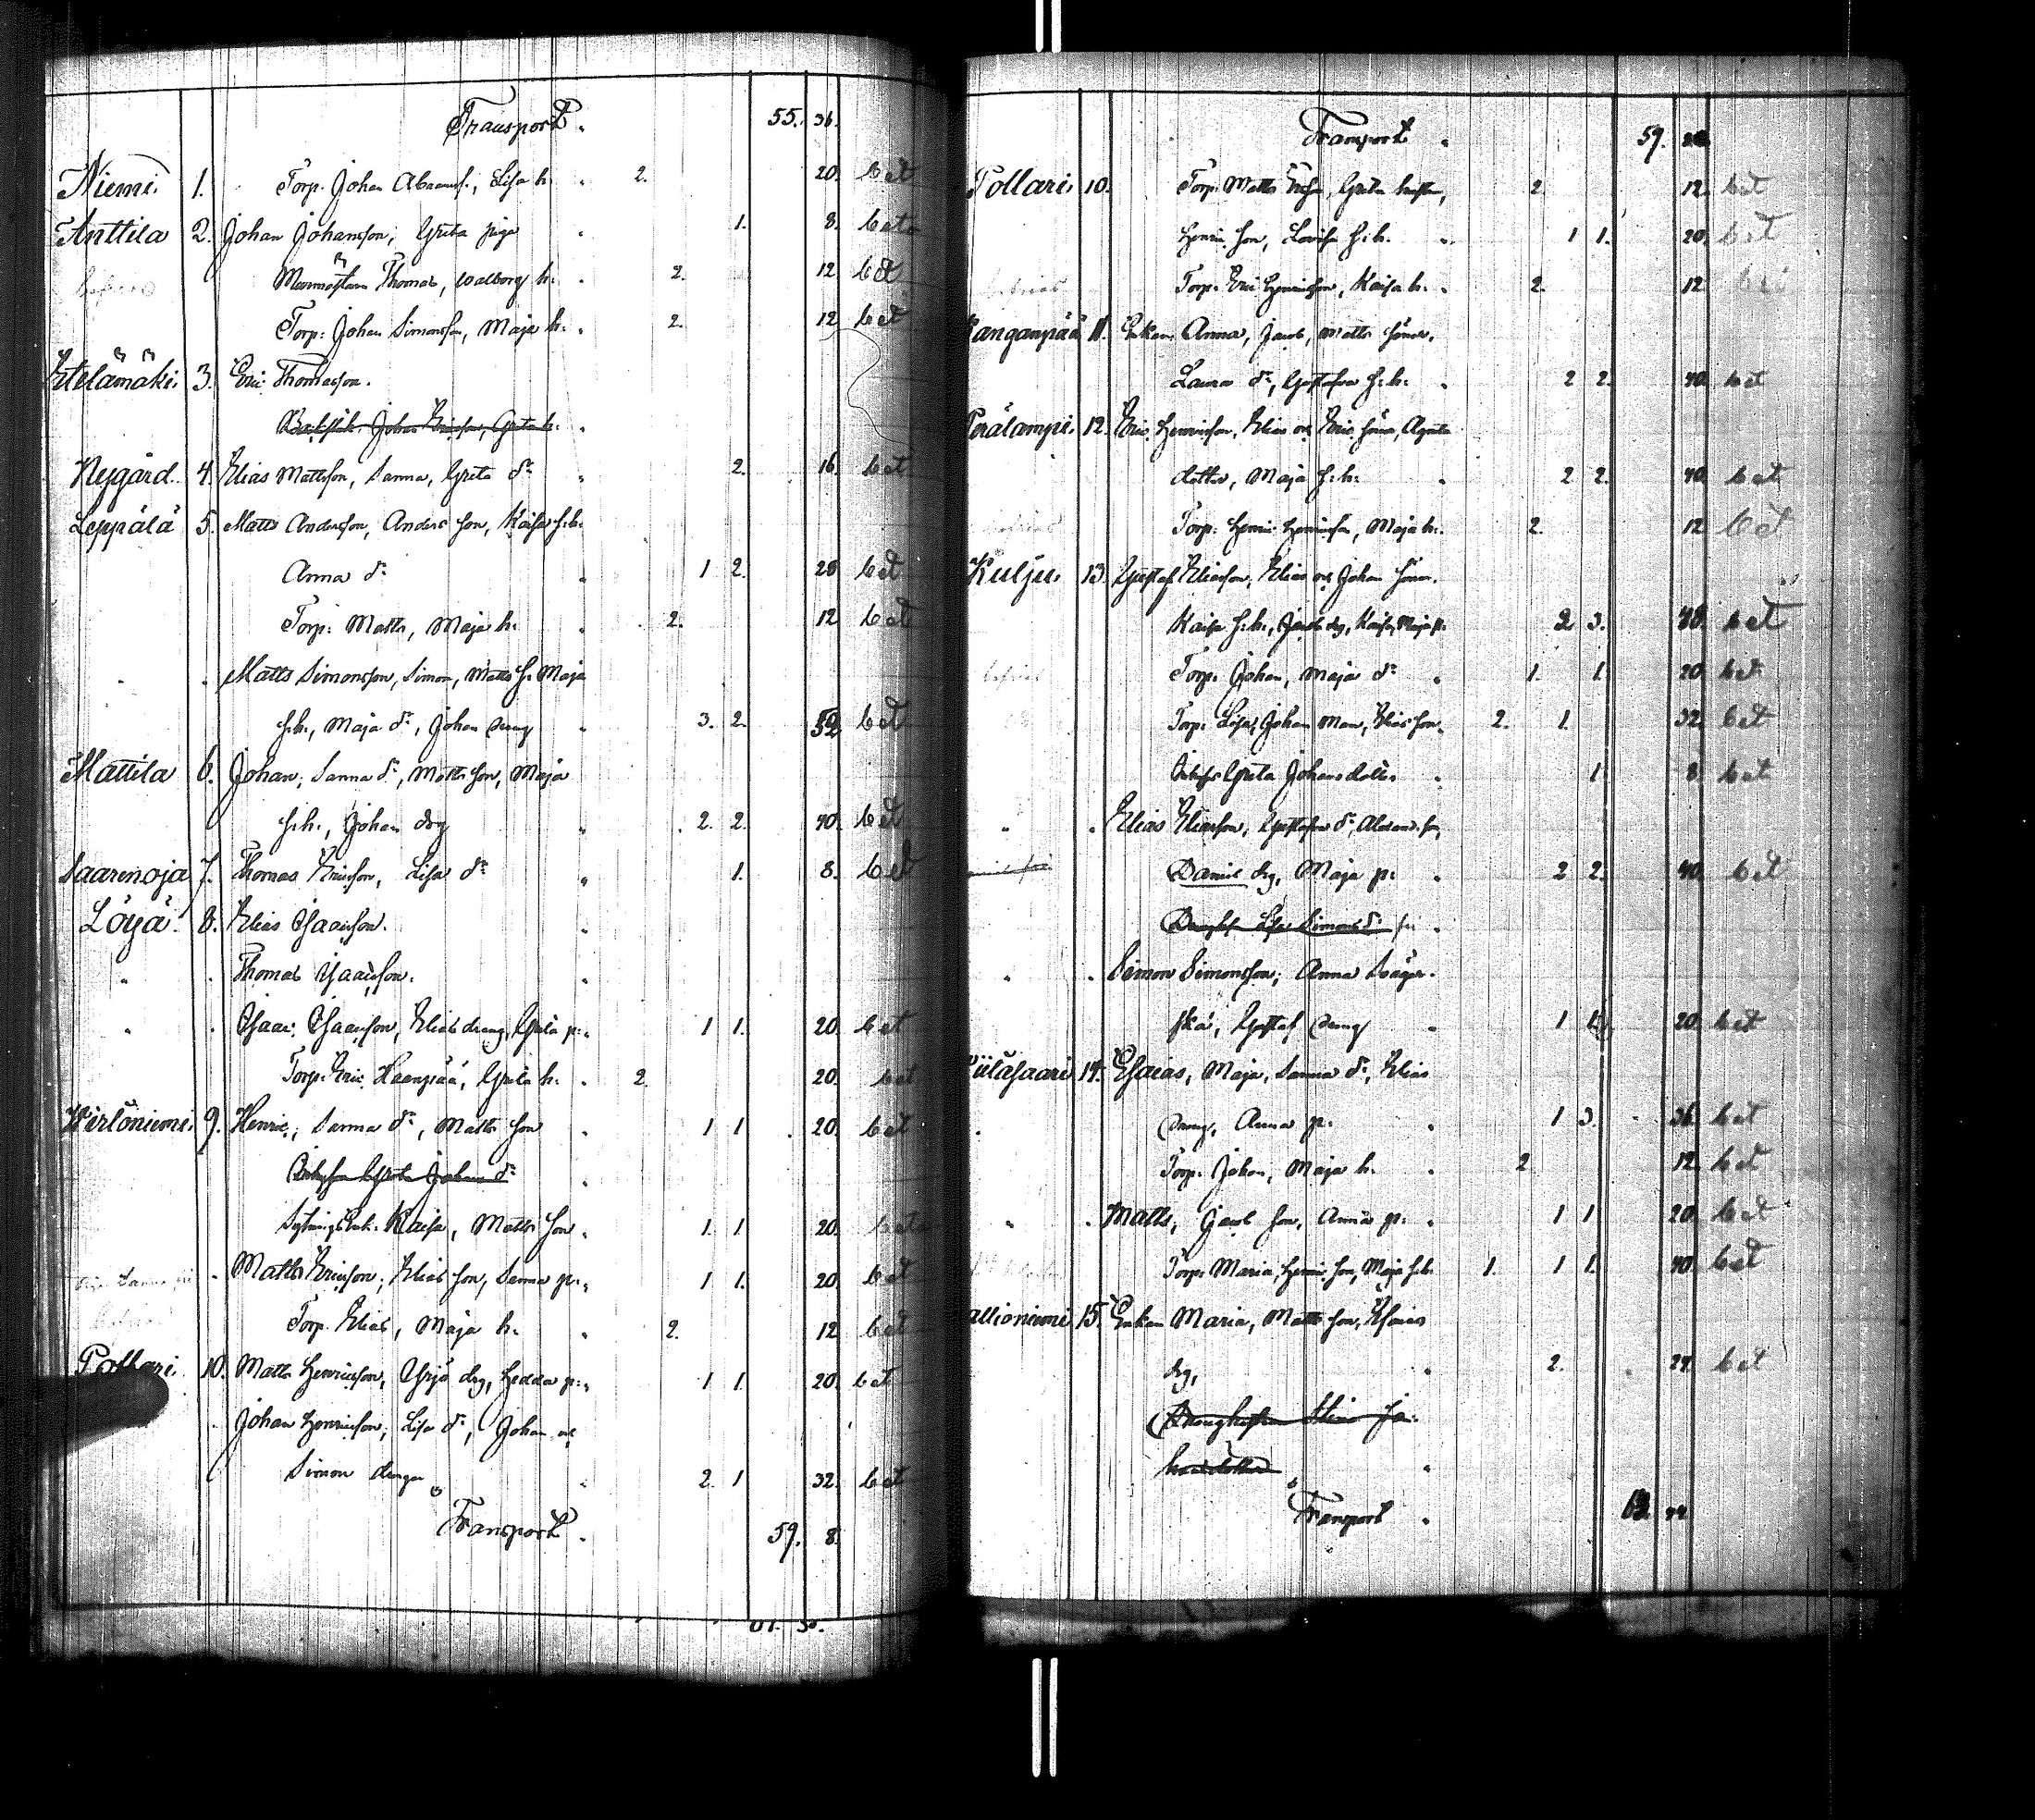 Transport. 55. 36.
Niemi. 1. Torp. Johan Abramss., Lisa h. 2. 20. bet
Anttila 2. Johan Johansson, Greta piga 1. 8. bet
Thomas, Walborg h. 2. 12 bet
Torp: Johan Simonsson, Maja h. 2. 12 bet
Etelämäki. 3. Eric Thomasson.
Johan Ericsson, Greta h.
Nygård. 4. Elias Mattsson, Sanna, Greta dr 2. 16. bet
Leppälä 5. Matts Andersson, Anders son, Kaisa s.h.
Anna dr 1 2. 28 bet
Torp: Matts, Maja h. 2. 12 bet
" . Matts Simonsson, Simon, Matts s. Maja
s.h., Maja dr, Johan dreng 3. 2. 52 bet
Mattila 6. Johan, Sanna dr, Matts son, Maja
s.h., Johan drg 2. 2. 40. bet
Saarenoja 7. Thomas Ericsson, Lisa dr 1. 8. bet
Löyä. 8. Elias Isaacsson.
" . Thomas Isaacsson.
" . Isaac Isaacsson, Elias dreng, Greta p. 1 1. 20. bet
Torp. Eric Haanpää, Greta h. 2. 20. bet
9. Henric, Sanna dr, Matts son 1 1 20. bet
Greta Johans dr
Kaisa, Matts son. 1. 1 20. bet
. Matts Ericsson, Elias son, Sanna p. 1 1. 20. bet
Torp. Elias, Maja h. 2. 12 bet
Pollari. 10. Matts Henricsson, Yrjö drg, Hedda p. 1 1. 20. bet
. Johan Henricsson, Lisa dr, Johan och
Simon drengar 2. 1 32. bet
Transport. 59. 8.
Transport 59.
Pollari. 10. Torp. Matts Greta 2. 12. bet
Henric son, Lovisa s.h. 1 1. 20. bet
Torp. Eric Henricsson, Kaisa h. 2. 12 bet
anganpää 11. Enkan Anna, Jacob, Matts söner,
Laura dr, Gustafva s.h. 2 2. 40. bet
Perälampi. 12. Eric Henricsson, Elias och Eric söner, Agata
dotter, Maja s.h. 2 2. 40. bet
Torp. Henric Henricsson, Maja h. 2. 12 bet
Kulju. 13. Gustaf Eliasson, Elias och Johan söner.
Kaisa s.h., Jacob drg, Kaisa, Maja p. 2 3. 48. bet
Torp. Johan, Maja dr 1. 1 20 bet
Torp. Lisa, Johan man, Elias son. 2. 1. 32. bet
Greta Johans dotter 1 8 bet
" . Elias Eliasson, Gustafva dr, son,
Daniel drg, Maja p. 2 2. 40. bet
Lisa Simons dr
" . Simon Simonsson, Anna Sväger-
ska, Gustaf dreng 1 1. 20. bet
14. Esaias, Maja, Sanna dr, Elias
dreng, Anna p. 1 3. 36 bet
Torp. Johan, Maja h. 2 12. bet
" . Matts, Jacob son, Anna p. 1 1 20 bet
Torp. Maria, Henric son, Maja s.h. 1. 1 1. 40 bet
allioniemi 15. Enkan Maria, Matts son, Esaias
drg, 2. 24 bet
Stina Jo-
hansdotter
Transport